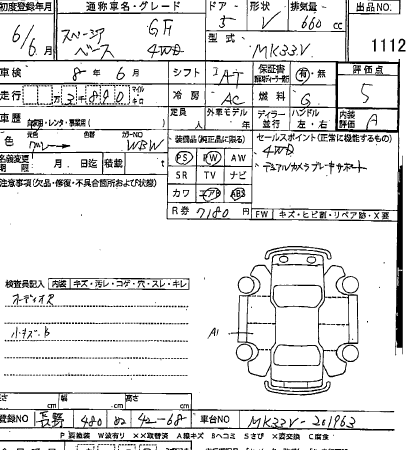 初度登録年月 通称車名・グレード ドア 形状 排気量 出品NO
6/6月 スペーシア ベース GF 4WD 5 V 660cc
型式 MK33V 1112
車検 8年6月 シフト IAT 保証書 有・無 評価点
走行 万3890 マイル キロ 冷房 AC 燃料 G 5
車歴 自家用・レンタ・事業用( ) 定員 人 外車モデル 年 ディーラー 並行 ハンドル 左・右 内装評価 A
色 元色 グレー→ 色替 カラーNO WBW 装備品(純正品に限る) セールスポイント(正常に機能するもの)
名義変更期限 月 日迄 積載 t PS PW AW 4WD
注意事項(欠品・修復・不具合箇所および状態) SR TV ナビ デュアルカメラブレーキサポート
カワ エアB ABS
R券 7180円 FW キズ・ヒビ割・リペア跡・X要
検査員記入 内装 キズ・汚レ・コゲ・穴・スレ・キレ
オーディオス
小キズ・B
A1
長さ cm 幅 cm 高さ cm
登録NO 長野 480 に 42-68 車台NO MK33V-201963
P 要塗装 W波有り XX取替済 A線キズ Bヘコミ Sさび X要交換 C腐食